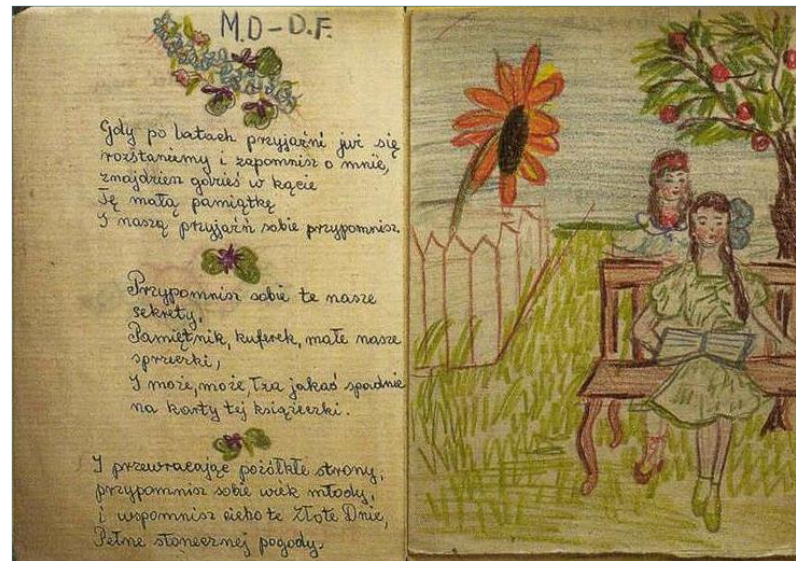 M.D – D.F.
Gdy po latach przyjaźni już się
rozstaniemy i zapomnisz o mnie,
znajdziesz gdzieś w kącie
Tę małą pamiątkę
I naszą przyjaźń sobie przypomnisz.
Przypomnisz sobie te nasze
sekrety,
Pamiętnik, kuferek, małe nasze
sprzeczki,
I może, może, łza jakaś spadnie
na karty tej książeczki.
I przewracając pożółkłe strony,
przypomnisz sobie wiek młody,
i wspomnisz cicho te Złote Dnie,
Pełne słonecznej pogody.